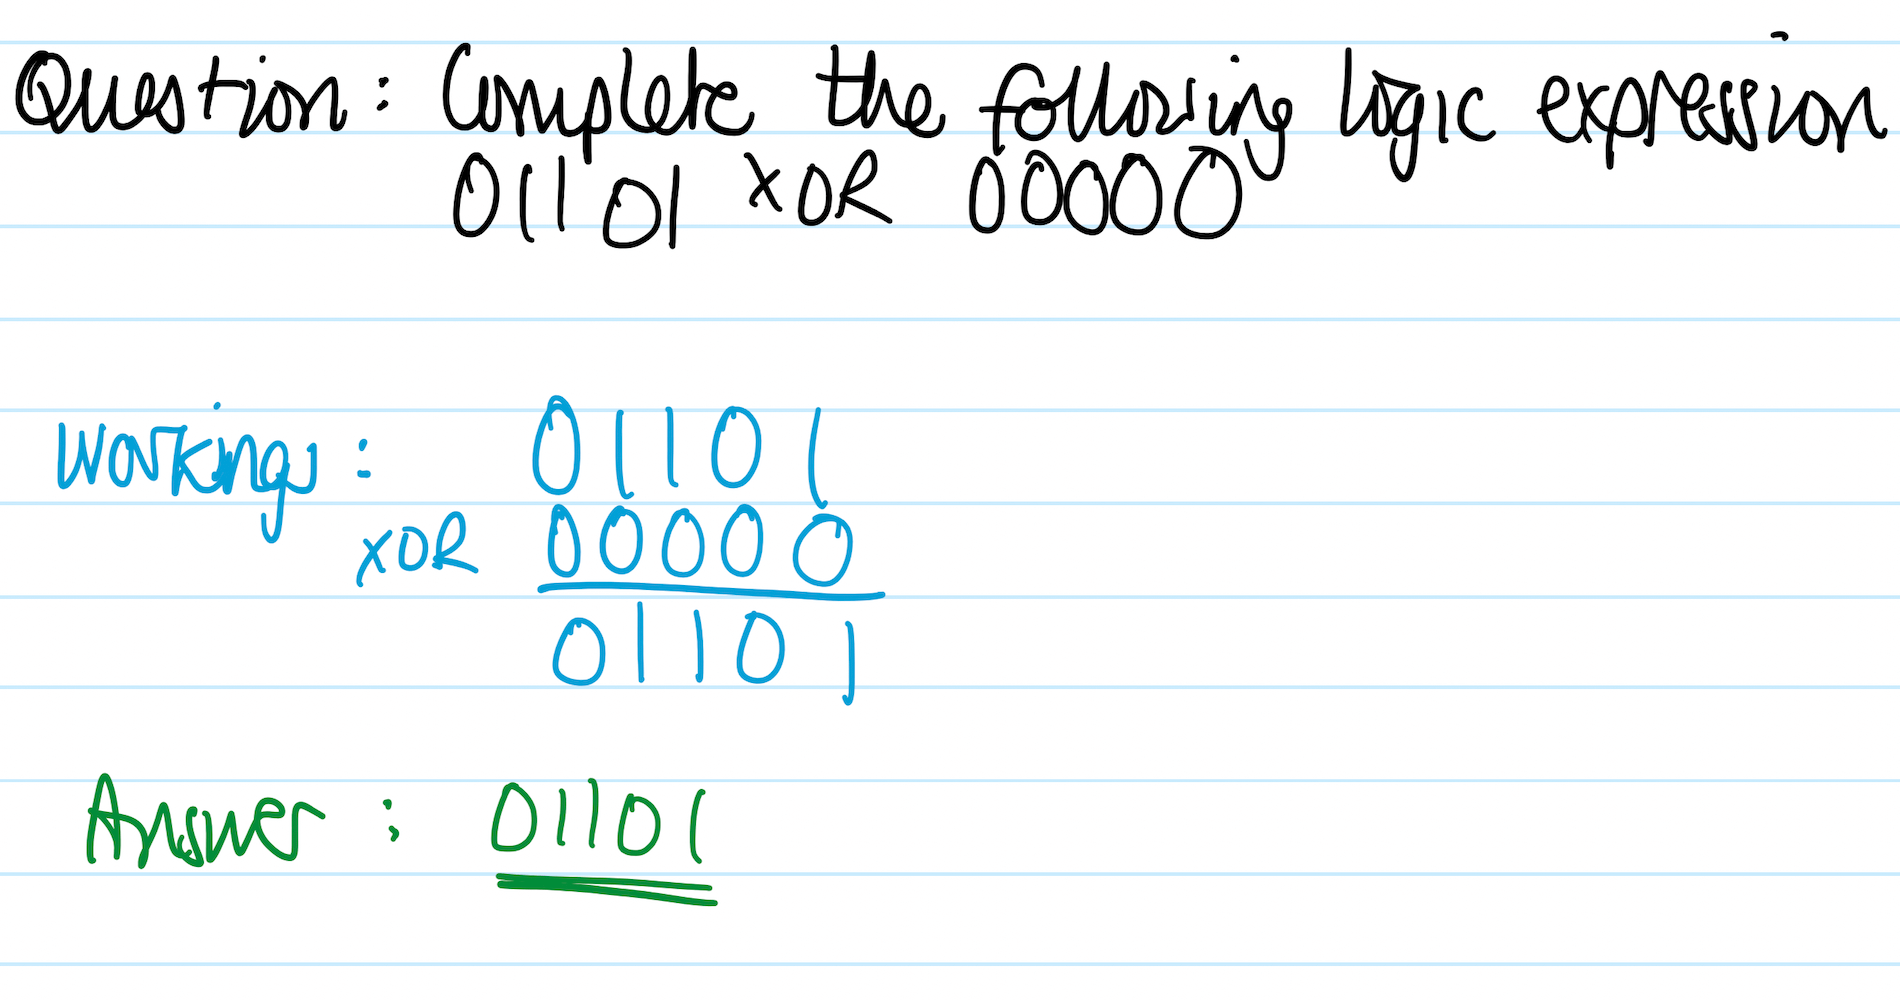 Question: Complete the following logic expression
01101 XOR 00000
Workings:
01101
XOR 00000
01101
Answer: 01101